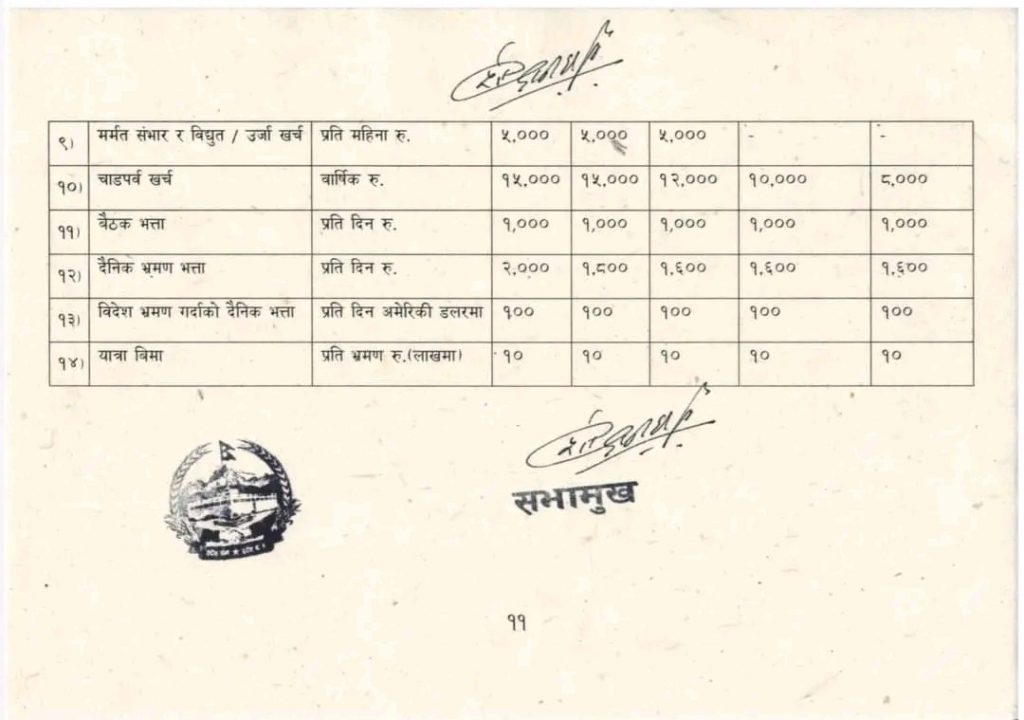 ९) मर्मत संभार र विद्युत / उर्जा खर्च प्रति महिना रु. ५,००० ५,००० ५,००० - -
१०) चाडपर्व खर्च वार्षिक रु. १५,००० १५,००० १२,००० १०,००० ८,०००
११) बैठक भत्ता प्रति दिन रु. १,००० १,००० १,००० १,००० १,०००
१२) दैनिक भ्रमण भत्ता प्रति दिन रु. २,००० १,८०० १,६०० १,६०० १,६००
१३) विदेश भ्रमण गर्दाको दैनिक भत्ता प्रति दिन अमेरिकी डलरमा १०० १०० १०० १०० १००
१४) यात्रा बिमा प्रति भ्रमण रु.(लाखमा) १० १० १० १० १०
सभामुख
११